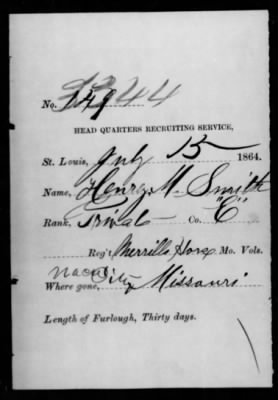 2344
No. 149
HEAD QUARTERS RECRUITING SERVICE,
St. Louis, July 15 1864.
Name, Henry M. Smith
Rank, Private Co. "E"
Reg't Merrills Horse Mo. Vols.
Where gone, City Missouri
Length of Furlough, Thirty days.